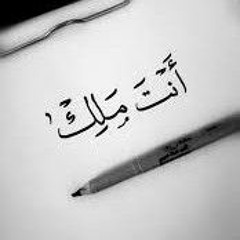 أَنْتَ مَلِكْ